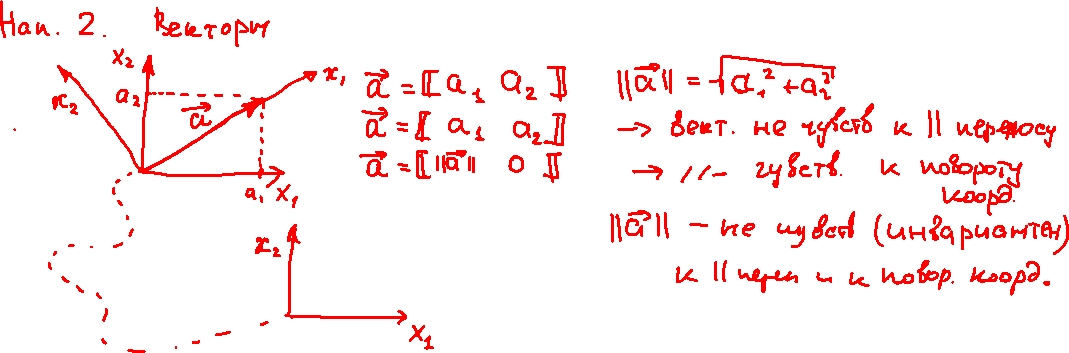 Нап. 2. Векторы
x₂
x₁
x₂
a₂
a⃗
a₁
x₁
x₂
x₁
a⃗ = ⟦ a₁ a₂ ⟧
a⃗ = ⟦ a₁ a₂ ⟧
a⃗ = ⟦ ||a⃗|| 0 ⟧
||a⃗|| = √a₁² + a₂²
→ вект. не чувств к || переносу
→ //– чувств. к повороту
коорд.
||a⃗|| – не чувств (инвариантен)
к || перен и к повор. коорд.